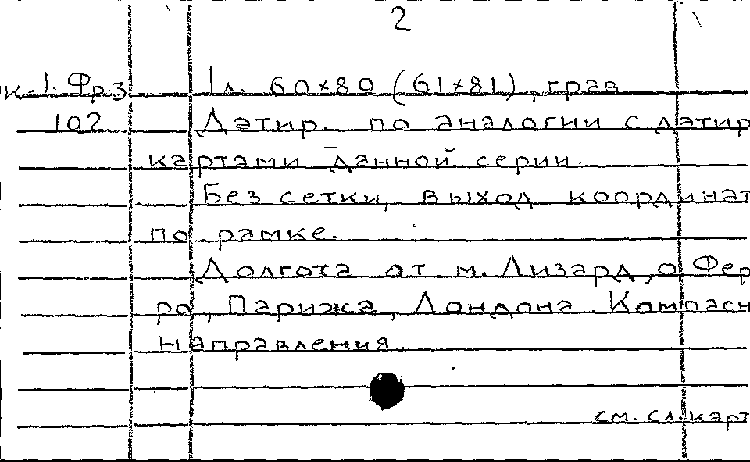 2
к-1. Фрз 1л. 60×80 (61×81), грав
102 Датир. по аналогии с датир
картами данной серии
Без сетки, выход координат
по рамке.
Долгота от м. Лизард, о Фер
ро, Парижа, Лондона. Компасн
направления.
см. сл. карт